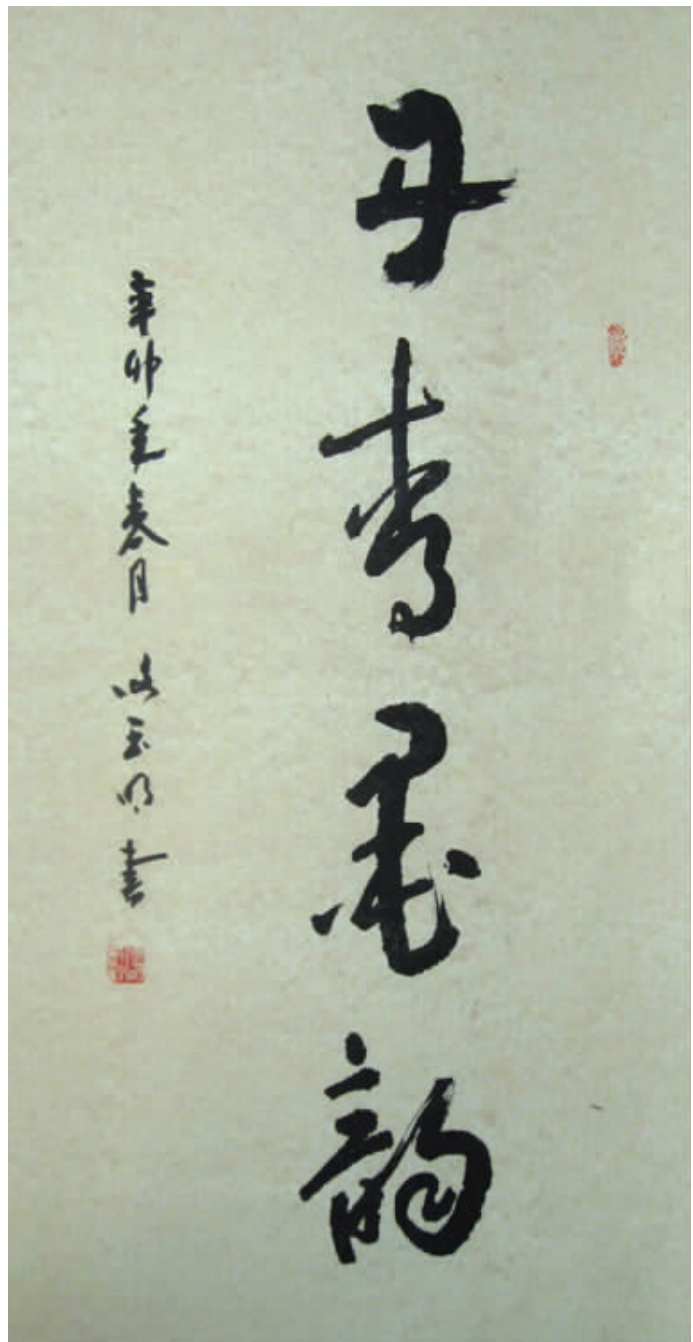 丹青墨韵
辛卯年春月 玉明书